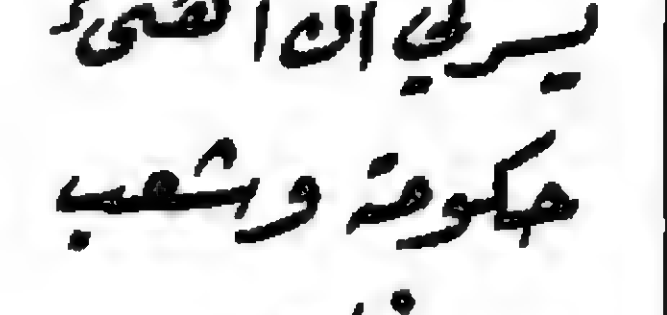 يسرني ان اهنئ
حكومة وشعب